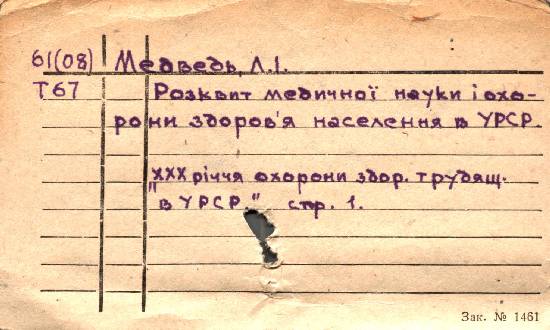 61(08) Медведь, Л.І.
Т67 Розквит медичної науки і охо-
рони здоров'я населення в УРСР.
"ХХХ річчя охорони здор. трудящ.
в УРСР." стр. 1.
Зак. № 1461